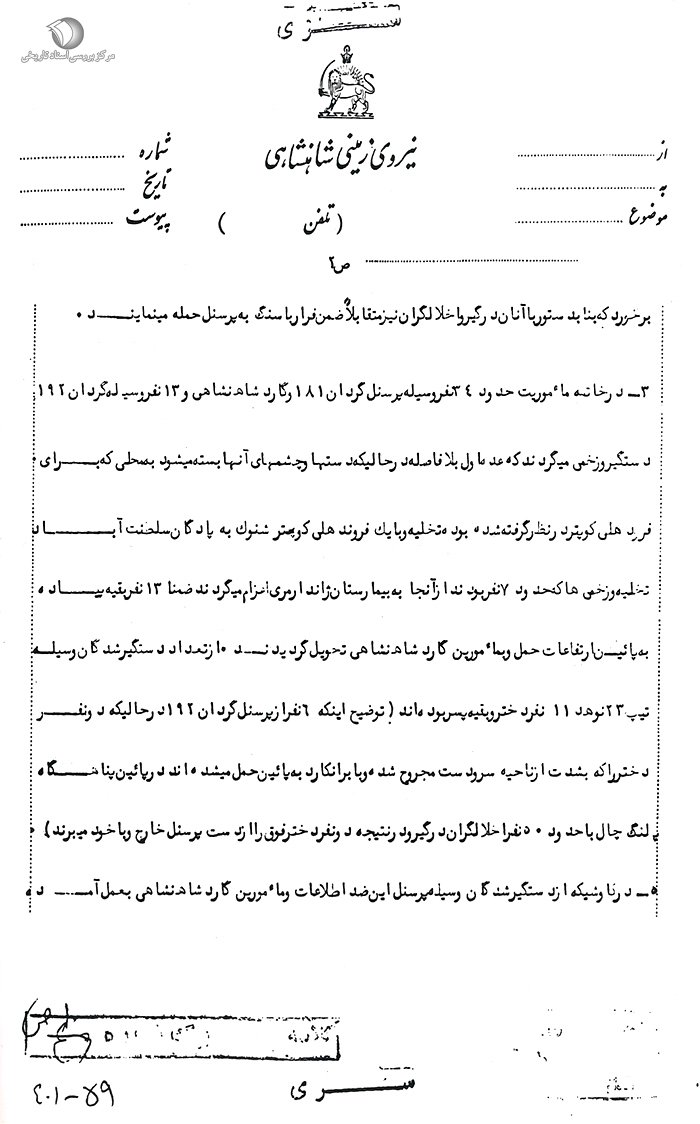 مرکز بررسی اسناد تاریخی
سری
نیروی زمینی شاهنشاهی
از
به
موضوع
شماره
تاریخ
پیوست
(تلفن )
ص٢
برخورد که بنا بدستور با آنان درگیر و اخلالگران نیز متقابلاً ضمن فرار با سنگ به پرسنل حمله مینمایند ۰
۳ـ در خاتمه مأموریت حدود ۳٤ نفر وسیله پرسنل گردان ۱۸۱ و گارد شاهنشاهی و ۱۳ نفر وسیله گردان ۱۹۲
دستگیر و زخمی میگردند که عده اول بلافاصله در حالیکه دستها و چشمهای آنها بسته میشود به محلی که برای
فرود هلی کوپتر در نظر گرفته شده بوده تخلیه و با یک فروند هلی کوپتر شنوک به پادگان سلطنت آباد
تخلیه و زخمی ها که حدود ۷ نفر بودند از آنجا به بیمارستان ژاندارمری اعزام میگردند ضمنا ۱۳ نفر بقیه پیاده
به پائین ارتفاعات حمل و بمأمورین گارد شاهنشاهی تحویل گردیدند ۰ از تعداد دستگیرشدگان وسیله
تیپ ۲۳ نوهد ۱۱ نفر دختر و بقیه پسر بوده اند ( توضیح اینکه ٦ نفر از پرسنل گردان ۱۹۲ در حالیکه دو نفر
دختر را که بشدت از ناحیه سر و دست مجروح شده و با برانکارد به پائین حمل میشده اند در پائین پناهگاه
پلنگ چال با حدود ۵۰ نفر اخلالگران درگیر و در نتیجه دو نفر دختر فوق را از دست پرسنل خارج و با خود میبرند ) ۰
۵ـ در کاوشیکه از دستگیرشدگان وسیله پرسنل این ضد اطلاعات و مأمورین گارد شاهنشاهی بعمل آمده
سری
٤۰۱-۵۹